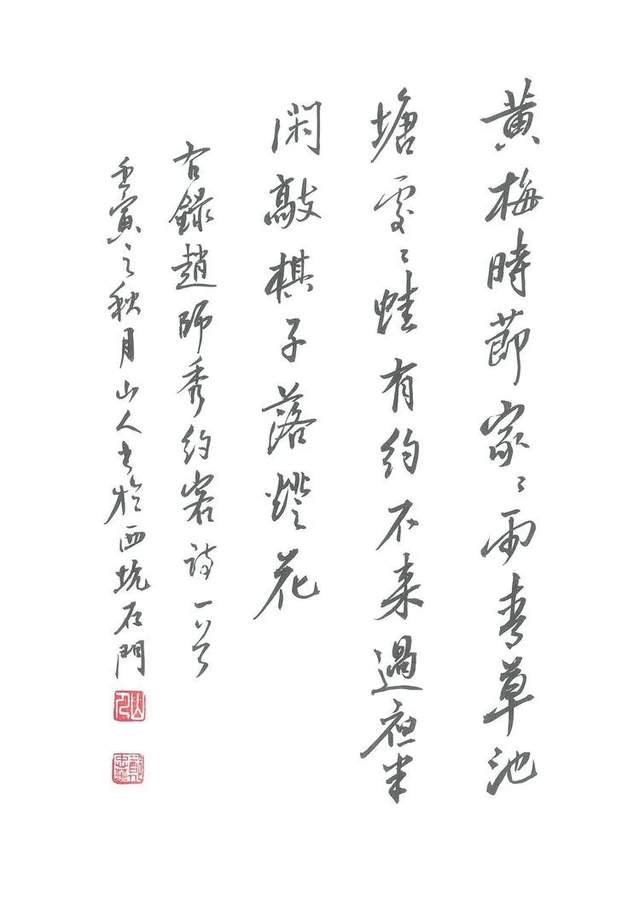 黄梅時節家〻雨青草池
塘處〻蛙有約不来過夜半
閑敲棋子落燈花
右録趙師秀約客詩一首
壬寅之秋月山人书於西坑石門
山人